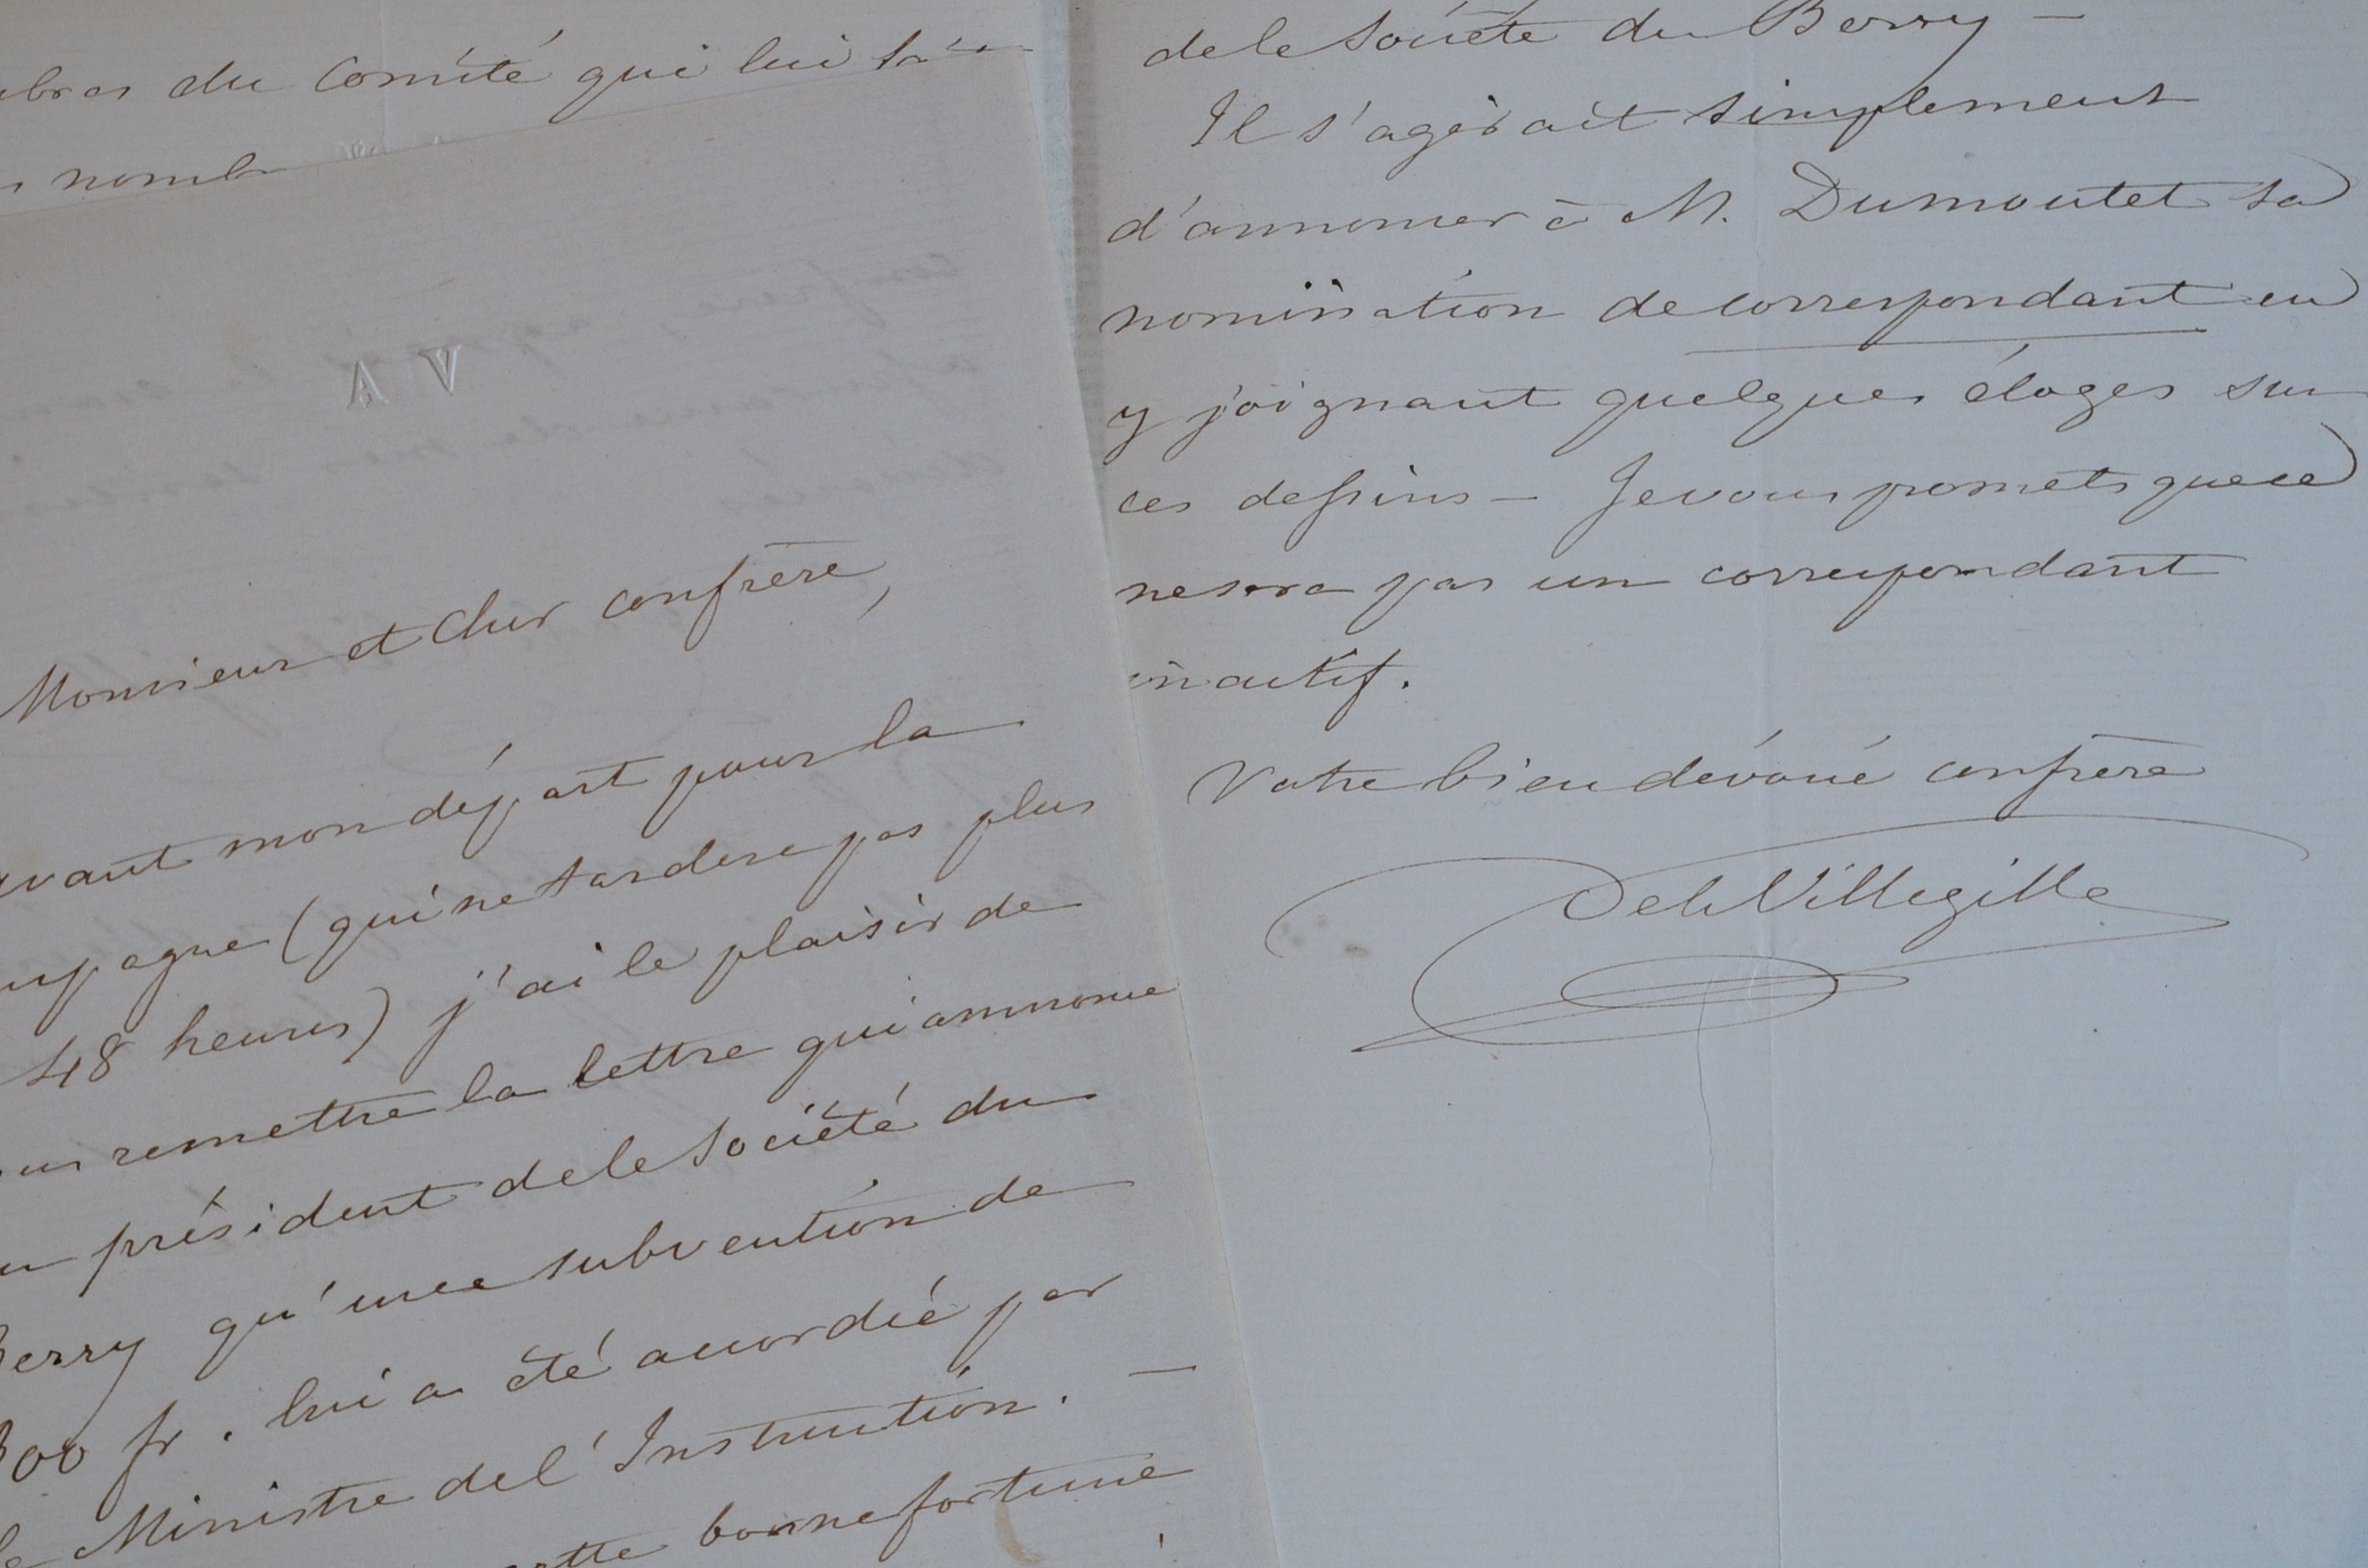 du Comité qui lui
A V
Monsieur et Cher confrère,
avant mon départ pour la
(qui ne tardera pas plus
48 heures) j'ai le plaisir de
remettre la lettre qui annonce
président de la Société du
Berry qu'une subvention de
300 fr. lui a été accordée par
le Ministre de l'Instruction. —
cette bonne fortune
de la Société du Berry —
Il s'agirait simplement
d'annoncer à M. Dumoutet sa
nomination de correspondant en
y joignant quelques éloges sur
ces dessins — Je vous promets que ce
ne sera pas un correspondant
inactif.
Votre bien dévoué confrère
De la Villegille